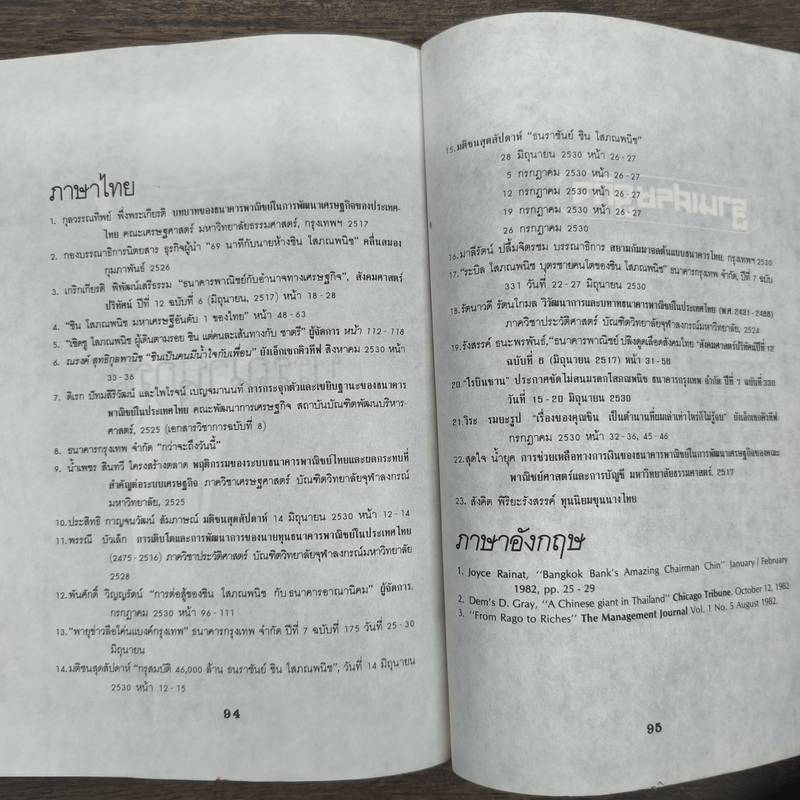 ภาษาไทย
1. กุลวรรณทิพย์ พึ่งพระเกียรติ บทบาทของธนาคารพาณิชย์ในการพัฒนาเศรษฐกิจของประเทศ-
ไทย คณะเศรษฐศาสตร์ มหาวิทยาลัยธรรมศาสตร์, กรุงเทพฯ 2517
2. กองบรรณาธิการนิตยสาร ธุรกิจผู้นำ "69 นาทีกับนายห้างชิน โสภณพนิช" คลื่นสมอง
กุมภาพันธ์ 2526
3. เกริกเกียรติ พิพัฒน์เสรีธรรม "ธนาคารพาณิชย์กับอำนาจทางเศรษฐกิจ", สังคมศาสตร์
ปริทัศน์ ปีที่ 12 ฉบับที่ 6 (มิถุนายน, 2517) หน้า 18 - 28
4. "ชิน โสภณพนิช มหาเศรษฐีอันดับ 1 ของไทย" หน้า 48 - 63
5. "เชิดชู โสภณพนิช ผู้เดินตามรอย ชิน แต่คนละเส้นทางกับ ชาตรี" ผู้จัดการ หน้า 112 - 118
6. ณรงค์ สุทธิกุลพานิช "ชินเป็นคนมีน้ำใจกับเพื่อน" ยังเอ็กเซกคิวทีฟ สิงหาคม 2530 หน้า
33 - 36
7. ดิเรก ปัทมสิริวัฒน์ และไพโรจน์ เบญจมานนท์ การกระจุกตัวและเขยิบฐานะของธนาคาร
พาณิชย์ในประเทศไทย คณะพัฒนาการเศรษฐกิจ สถาบันบัณฑิตพัฒนบริหาร-
ศาสตร์, 2525 (เอกสารวิชาการฉบับที่ 8)
8. ธนาคารกรุงเทพ จำกัด "กว่าจะถึงวันนี้"
9. น้ำเพชร สินทวี โครงสร้างตลาด พฤติกรรมของระบบธนาคารพาณิชย์ไทยและผลกระทบที่
สำคัญต่อระบบเศรษฐกิจ ภาควิชาเศรษฐศาสตร์ บัณฑิตวิทยาลัยจุฬาลงกรณ์
มหาวิทยาลัย, 2525
10. ประสิทธิ์ กาญจนวัฒน์ สัมภาษณ์ มติชนสุดสัปดาห์ 14 มิถุนายน 2530 หน้า 12 - 14
11. พรรณี บัวเล็ก การเติบโตและการพัฒนาการของนายทุนธนาคารพาณิชย์ในประเทศไทย
(2475 - 2516) ภาควิชาประวัติศาสตร์ บัณฑิตวิทยาลัยจุฬาลงกรณ์มหาวิทยาลัย
2528
12. พันศักดิ์ วิญญรัตน์ "การต่อสู้ของชิน โสภณพนิช กับธนาคารอาณานิคม" ผู้จัดการ,
กรกฎาคม 2530 หน้า 96 - 111
13. "พายุข่าวลือโค่นแบงค์กรุงเทพ" ธนาคารกรุงเทพ จำกัด ปีที่ 7 ฉบับที่ 175 วันที่ 25 - 30
มิถุนายน
14. มติชนสุดสัปดาห์ "กรุสมบัติ 46,000 ล้าน ธนราชันย์ ชิน โสภณพนิช", วันที่ 14 มิถุนายน
2530 หน้า 12 - 15
94
15. มติชนสุดสัปดาห์ "ธนราชันย์ ชิน โสภณพนิช"
28 มิถุนายน 2530 หน้า 26 - 27
5 กรกฎาคม 2530 หน้า 26 - 27
12 กรกฎาคม 2530 หน้า 26 - 27
19 กรกฎาคม 2530 หน้า 26 - 27
26 กรกฎาคม 2530
16. มาลีรัตน์ ปลื้มจิตรชม บรรณาธิการ สยามกัมมาจลต้นแบบธนาคารไทย, กรุงเทพฯ 2530
17. "ระบิล โสภณพนิช บุตรชายคนโตของชิน โสภณพนิช" ธนาคารกรุงเทพ จำกัด, ปีที่ 7 ฉบับ
331 วันที่ 22 - 27 มิถุนายน 2530
18. รัตนาวดี รัตนโกมล วิวัฒนาการและบทบาทธนาคารพาณิชย์ในประเทศไทย (พ.ศ. 2431 - 2488)
ภาควิชาประวัติศาสตร์ บัณฑิตวิทยาลัยจุฬาลงกรณ์มหาวิทยาลัย, 2524
19. รังสรรค์ ธนะพรพันธ์, "ธนาคารพาณิชย์ ปลิงดูดเลือดสังคมไทย" สังคมศาสตร์ปริทัศน์ปีที่ 12
ฉบับที่ 6 (มิถุนายน 2517) หน้า 31 - 58
20. "โรบินชาน" ประกาศขัดไม่สนมรดกโสภณพนิช ธนาคารกรุงเทพ จำกัด ปีที่ 7 ฉบับที่ 330
วันที่ 15 - 20 มิถุนายน 2530
21. วิระ รมยะรูป "เรื่องของคุณชิน เป็นตำนานที่ผมเล่าเท่าไหร่ก็ไม่รู้จบ" ยังเอ็กเซกคิวทีฟ
กรกฎาคม 2530 หน้า 32 - 36, 45 - 46
22. สุดใจ น้ำยุค การช่วยเหลือทางการเงินของธนาคารพาณิชย์ในการพัฒนาเศรษฐกิจของคณะ
พาณิชย์ศาสตร์และการบัญชี มหาวิทยาลัยธรรมศาสตร์, 2517
23. สังศิต พิริยะรังสรรค์ ทุนนิยมขุนนางไทย
ภาษาอังกฤษ
1. Joyce Rainat, "Bangkok Bank's Amazing Chairman Chin" January / February
1982, pp. 25 - 29
2. Dem's D. Gray, "A Chinese giant in Thailand" Chicago Tribune. October 12, 1982
3. "From Rago to Riches" The Management Journal Vol. 1 No. 5 August 1982.
95